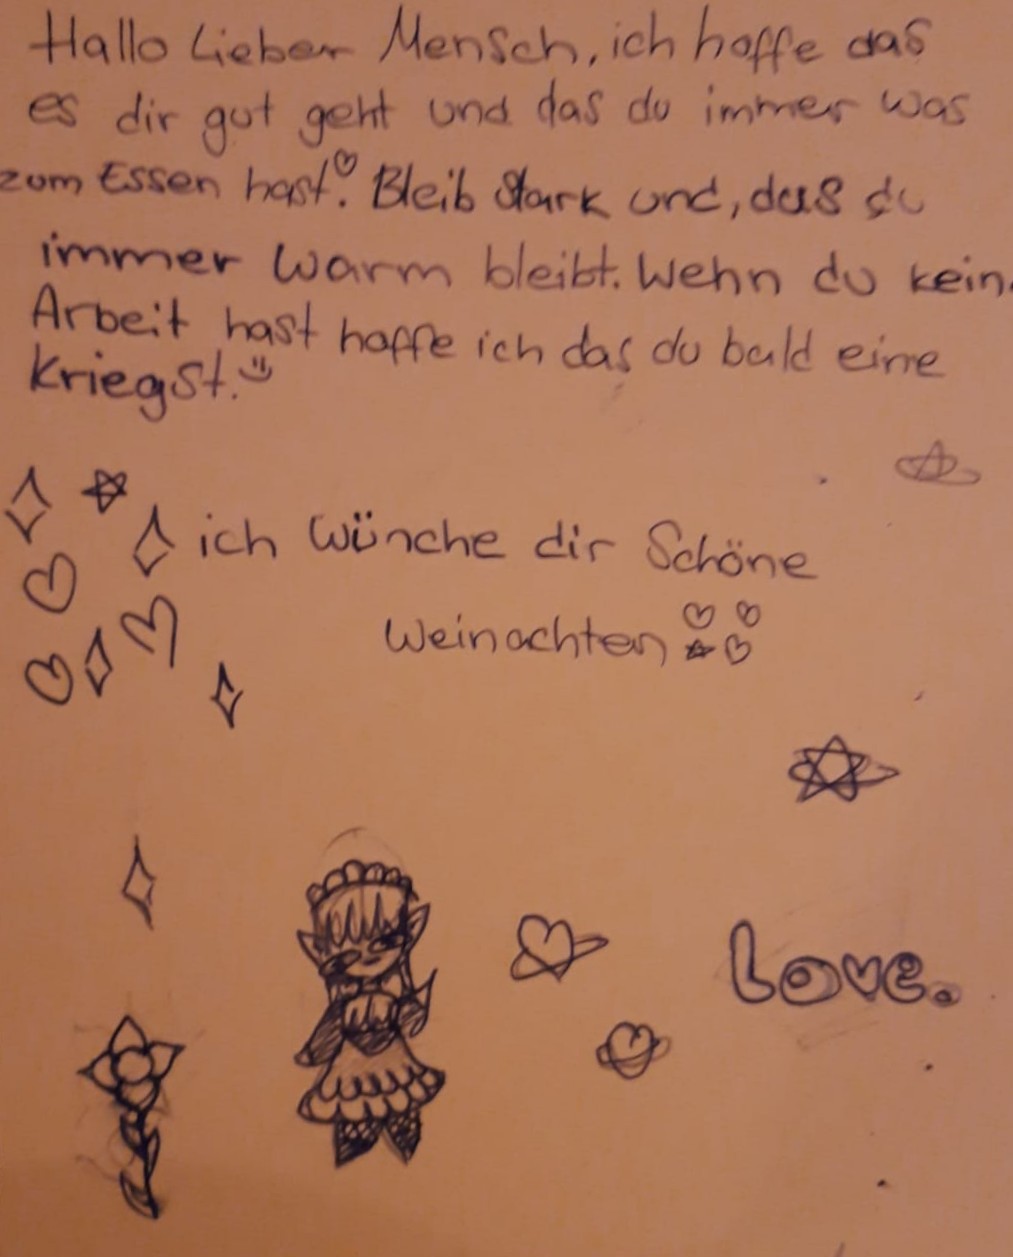 Hallo Lieber Mensch, ich hoffe das
es dir gut geht und das du immer was
zum Essen hast. Bleib Stark und, das du
immer warm bleibt. Wehn du kein
Arbeit hast hoffe ich das du bald eine
kriegst.
ich wünche dir Schöne
weinachten
Love.